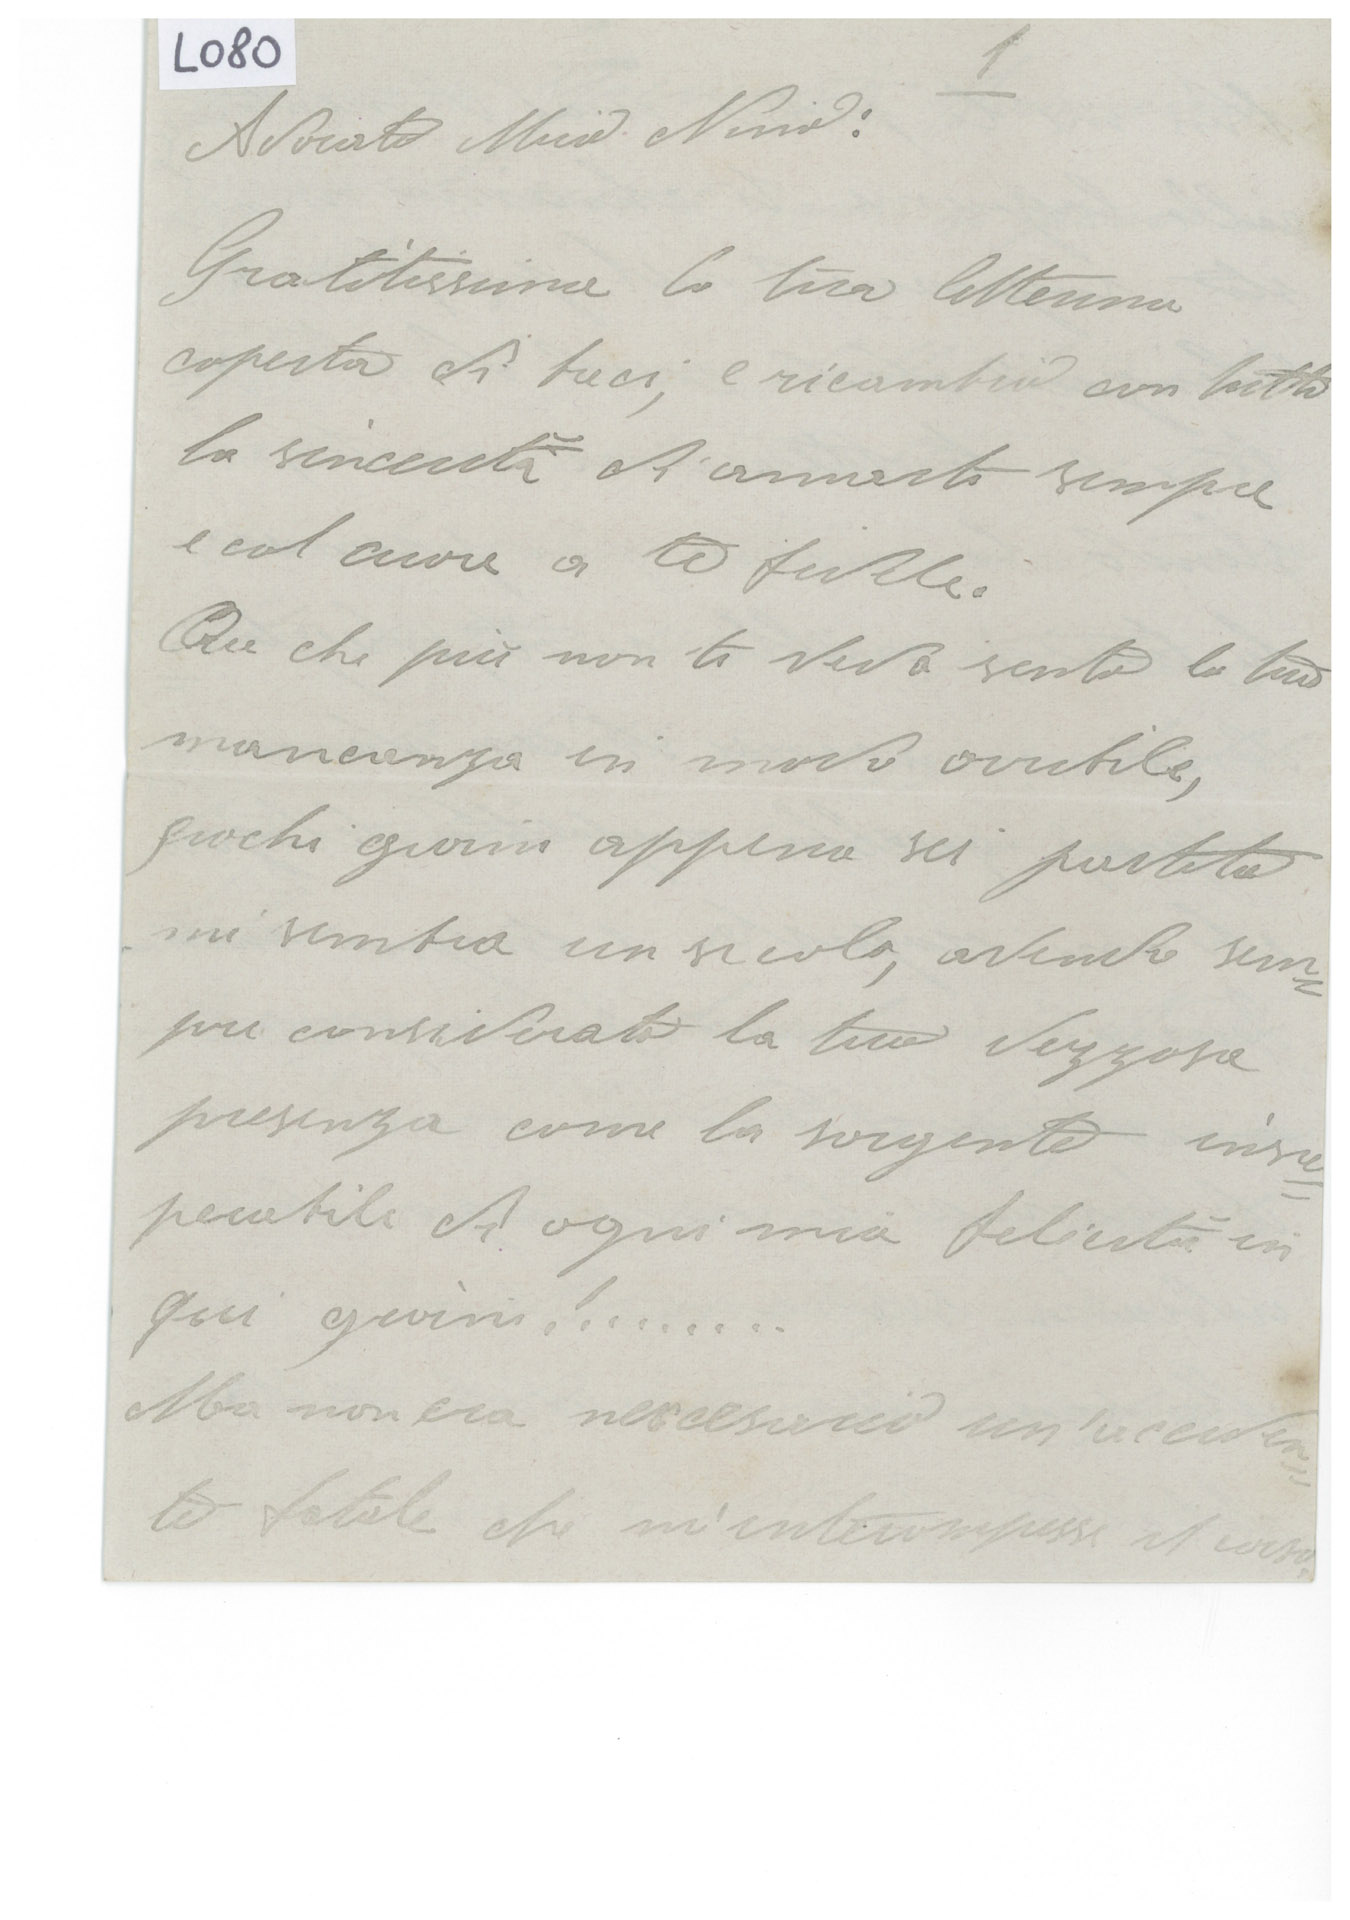 L080
1
Adorato Mio Nino:
Gratitissima la tua letterina
coperta di baci, e ricambio con tutta
la sincerità di amarti sempre
e col cuore a te fidele.
Ora che più non ti vedo sento la tua
mancanza in modo orribile,
pochi giorni appena sei partito
mi sembra un secolo, avendo sem=
pre considerato la tua vezzosa
presenza come la sorgente inse=
perabile di ogni mia felicità in
qui giorni!........
Ma non era necessario un'acceden=
te fatale che m'interompesse il corso